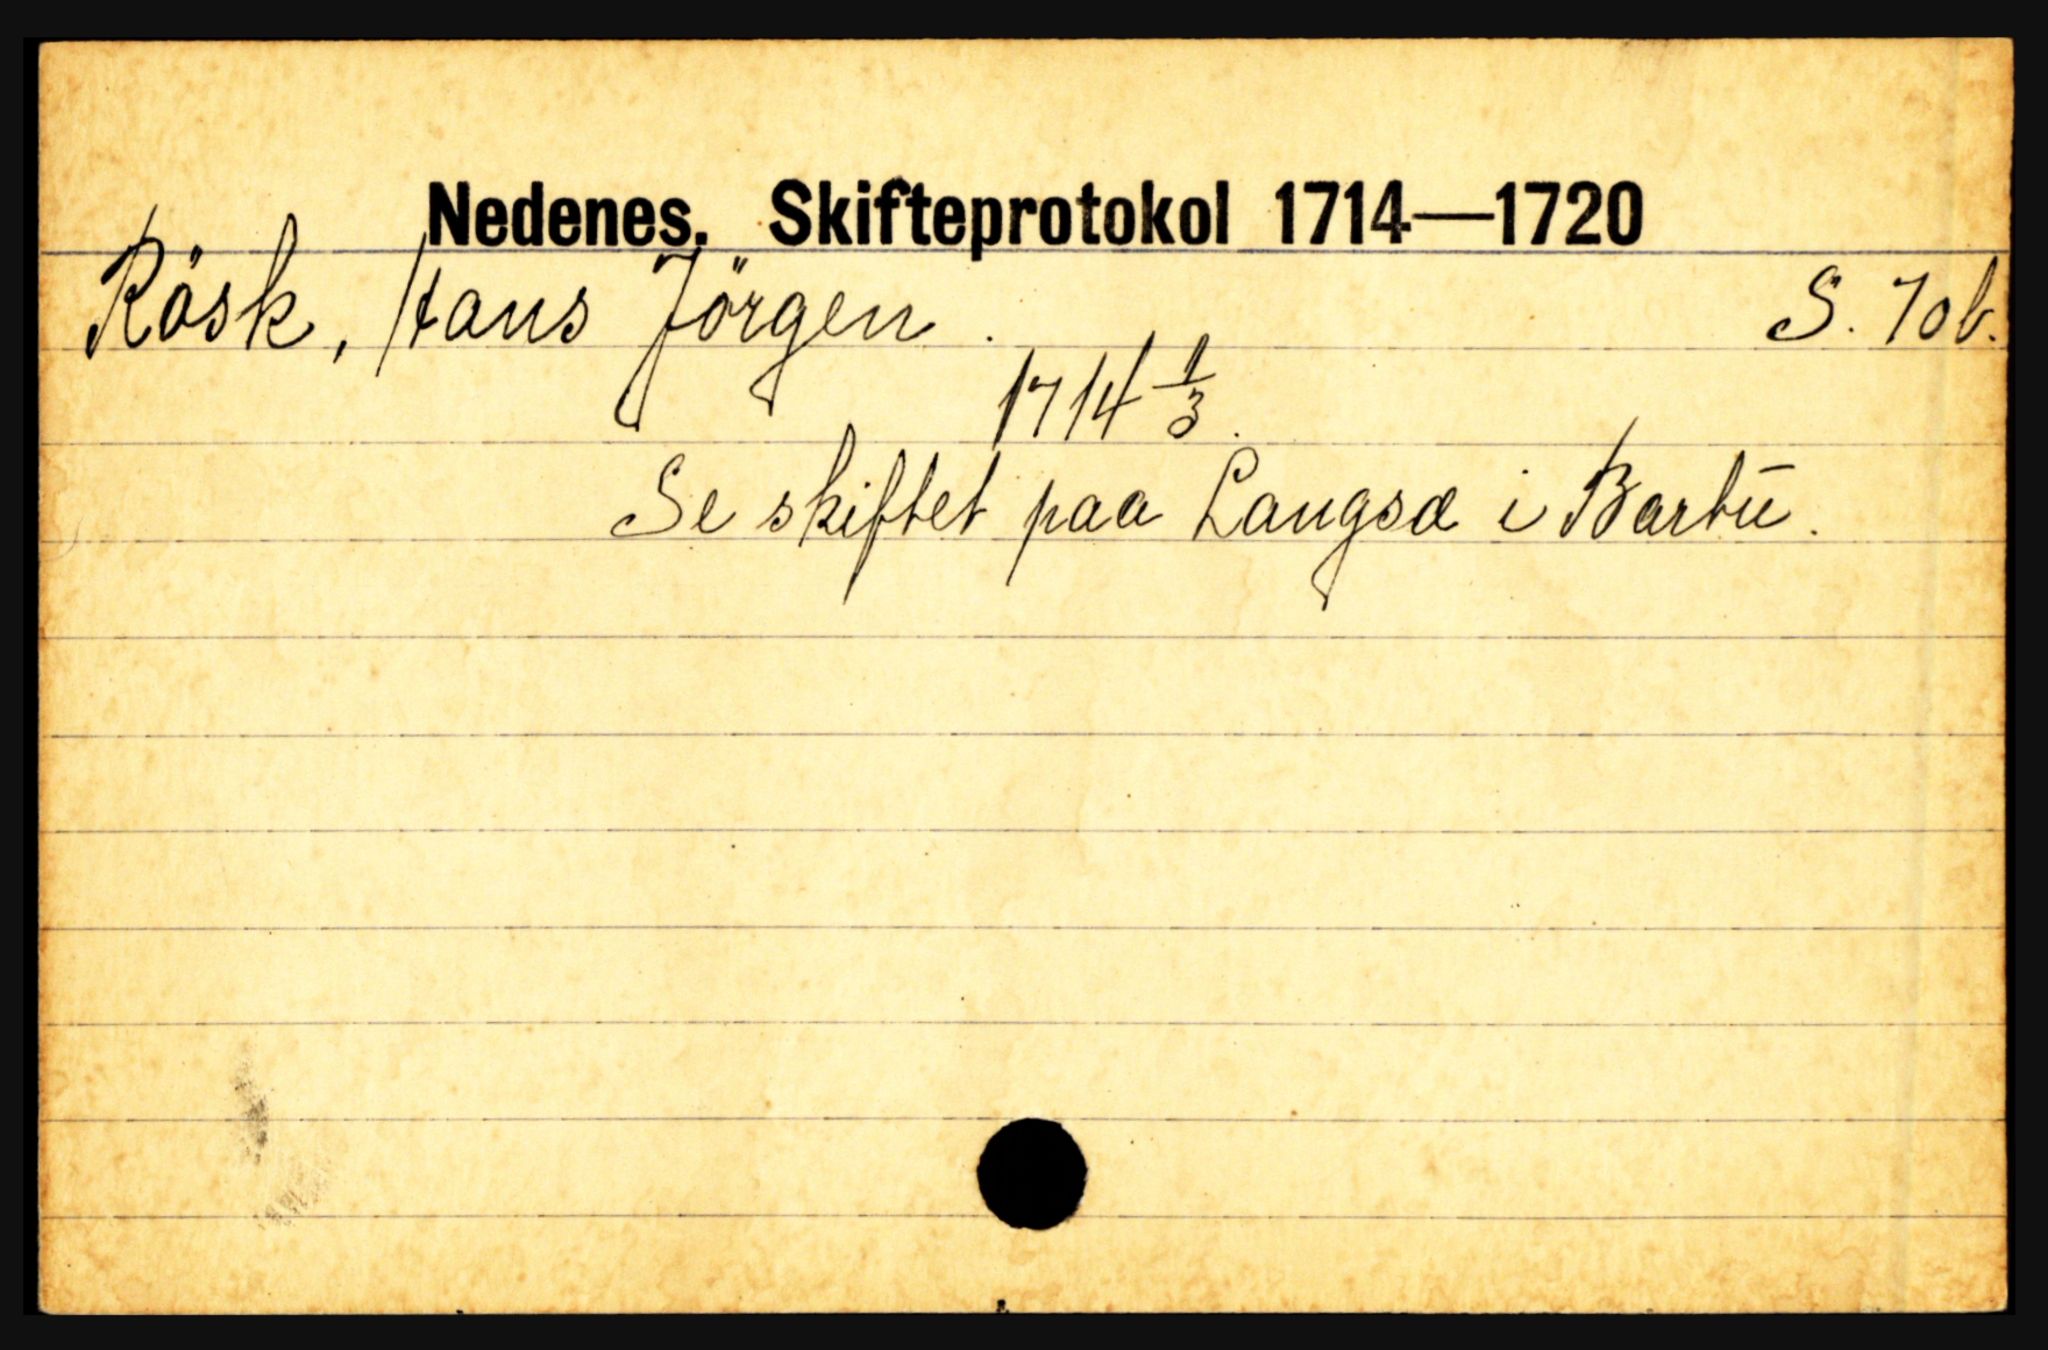 Nedenes. Skifteprotokol 1714—1720
Rösk, Hans Jörgen. S. 70b.
1714 1/3.
Se skiftet paa Langsæ i Barbū.